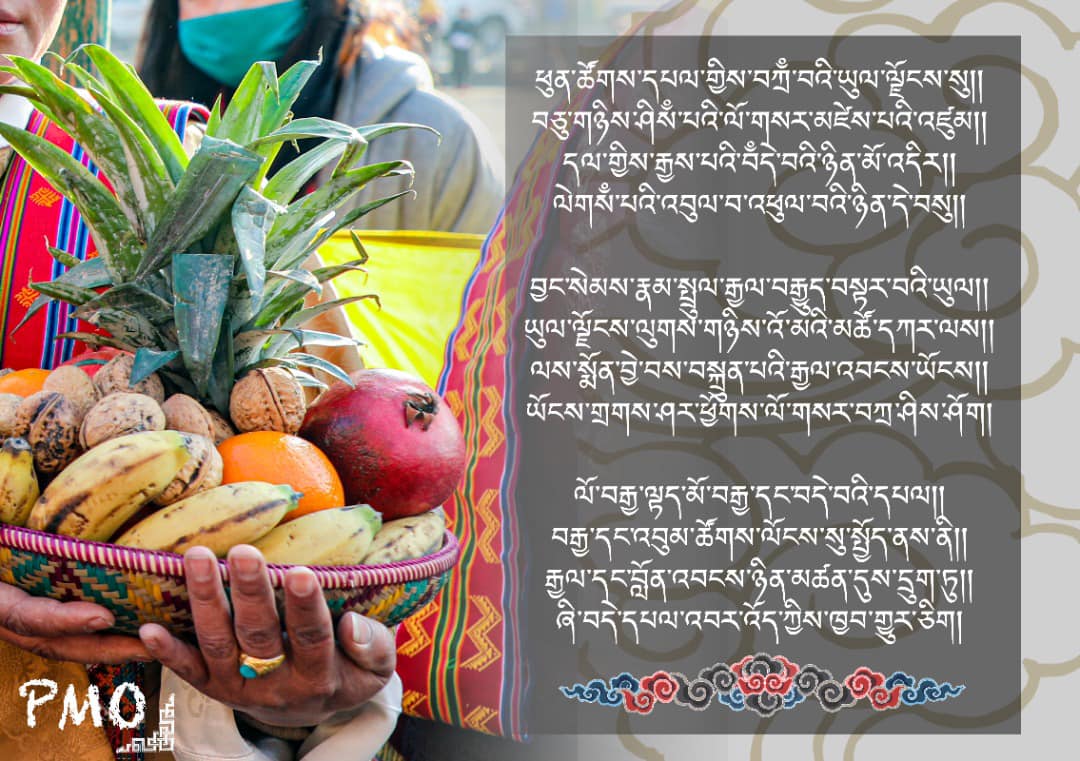 ཕུན་ཚོགས་དཔལ་གྱིས་བཀྲཾ་བའི་ཡུལ་ལྗོངས་སུ།།
བཅུ་གཉིས་ཤིསཾ་པའི་ལོ་གསར་མཛེས་པའི་འཛུམ།།
དལ་གྱིས་རྒྱས་པའི་བཾདེ་བའི་ཉིན་མོ་འདིར།།
ལེགསཾ་པའི་འབུལ་བ་འཕུལ་བའི་ཉིན་དེ་བསུ།།
བྱང་སེམས་རྣམ་སྤྲུལ་རྒྱལ་བརྒྱུད་བསྟར་བའི་ཡུལ།།
ཡུལ་ལྗོངས་ལུགས་གཉིས་འོ་མའི་མཚོ་དཀར་ལས།།
ལས་སྨོན་བྱེ་བས་བསྐྲུན་པའི་རྒྱལ་འབངས་ཡོངས།།
ཡོངས་གྲགས་ཤར་ཕྱོགས་ལོ་གསར་བཀྲ་ཤིས་ཤོག།
ལོ་བརྒྱ་ལྟད་མོ་བརྒྱ་དང་བདེ་བའི་དཔལ།།
བརྒྱ་དང་འབུམ་ཚོགས་ལོངས་སུ་སྤྱོད་ནས་ནི།།
རྒྱལ་དང་བློན་འབངས་ཉིན་མཚན་དུས་དྲུག་ཏུ།།
ཞི་བདེ་དཔལ་འབར་འོད་ཀྱིས་ཁྱབ་གྱུར་ཅིག།
PMO